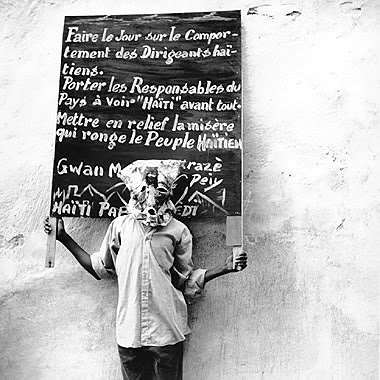 Faire le Jour sur le Compor-
tement des Dirigeants haï-
tiens.
Porter les Responsables du
Pays à Voir "HAÏTI" avant tout.
Mettre en relief la misère
qui ronge le Peuple HAITIEN
Gwan
Peyi
HAÏTI